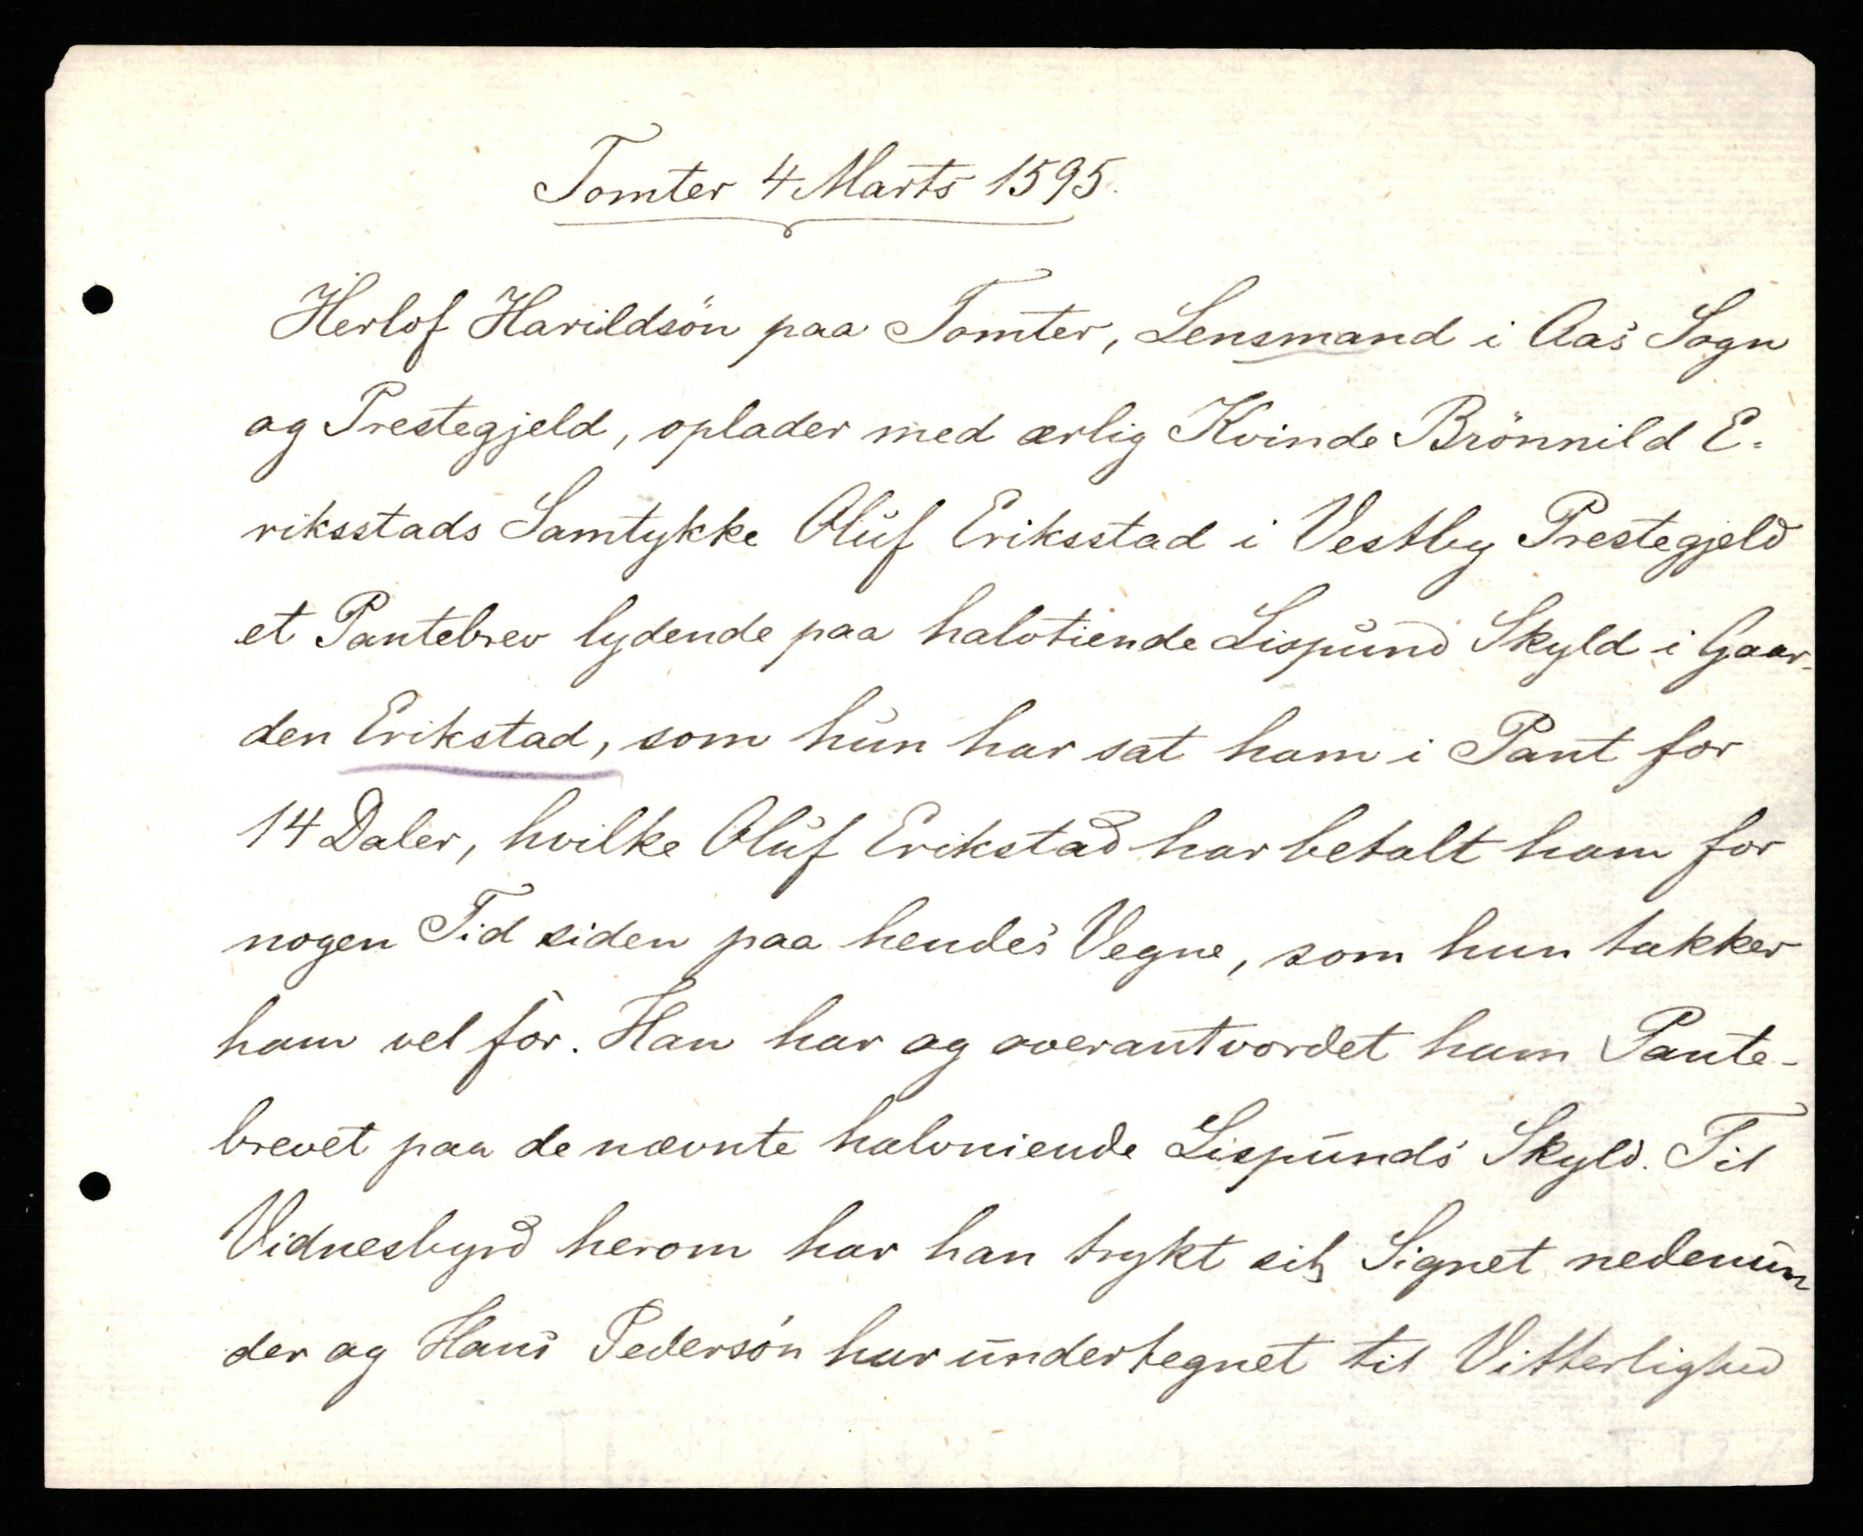 Tomter 4 Marts 1595.
Herlof Harildsön paa Tomter, Lensmand i Aas Sogn
og Prestegjeld, oplader med ærlig Kvinde Brönnild E-
riksstads Samtykke Oluf Eriksstad i Vestby Prestegjeld
et Pantebrev lydende paa halvtiende Lispund Skyld i Gaar-
den Erikstad, som hun har sat ham i Pant for
14 Daler, hvilke Oluf Erikstad har betalt ham for
nogen Tid siden paa hendes Vegne, som hun takker
ham vel for. Han har og overantvordet ham Pante-
brevet paa de nævnte halvniende Lispunds Skyld. Til
Vidnesbyrd herom har han trykt sit Signet nedenun
der og Hans Pedersön har undertegnet til Vitterlighed